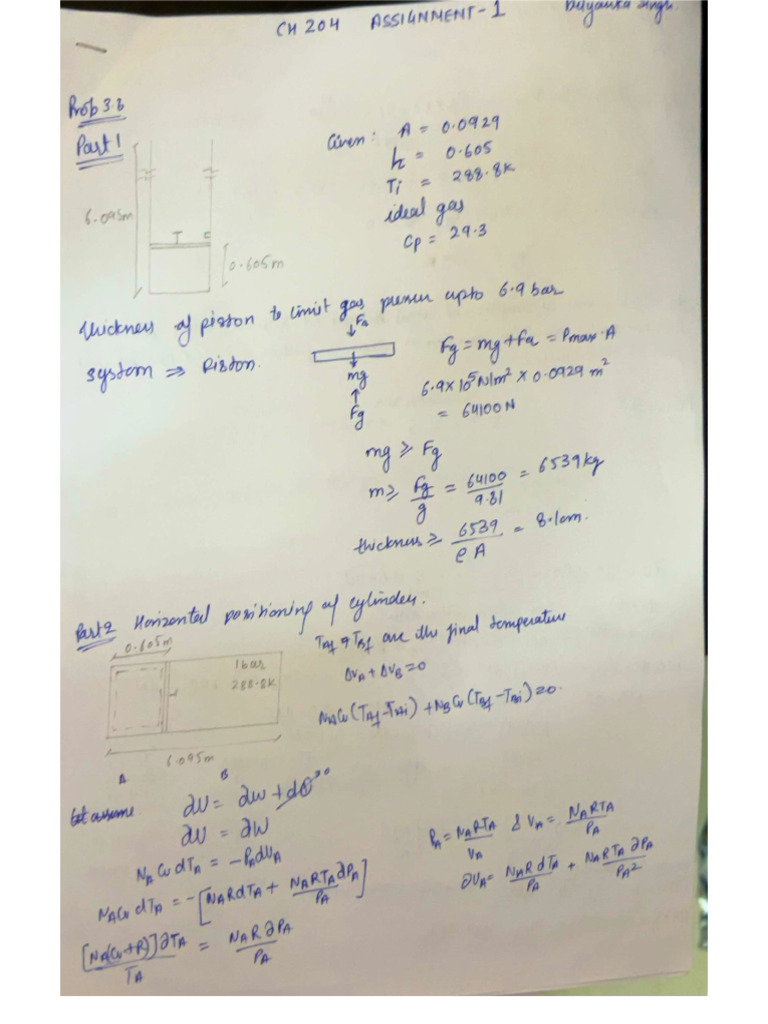 CH 204 ASSIGNMENT-1
Prob 3.8
Part 1
Given: A = 0.0929
h = 0.605
Ti = 288.8K
ideal gas
Cp = 29.3
6.095m
0.605m
thickness of piston to limit gas pressure upto 6.9 bar
system ⇒ Piston.
↓Fa
mg
↑
Fg
Fg = mg + Fa = Pmax·A
6.9×10⁵ N/m² × 0.0929 m²
= 64100 N
mg ≥ Fg
m ≥ Fg/g = 64100/9.81 = 6539 kg
thickness ≥ 6539/ρA = 8.1cm.
Part 2 Horizontal positioning of cylinder.
0.605m
1 bar
288.8K
6.095m
A B
TAf & TBf are the final temperature
ΔUA + ΔUB = 0
NACv(TAf - TAi) + NBCv(TBf - TBi) = 0.
let assume
∂U = ∂W + dQ→0
∂U = ∂W
NA Cv dTA = -PAdVA
NACv dTA = -[NARdTA + NARTA∂PA/PA]
[NA(Cv+R)]∂TA/TA = NAR∂PA/PA
PA = NARTA/VA & VA = NARTA/PA
∂VA = NARdTA/PA + NARTA∂PA/PA²